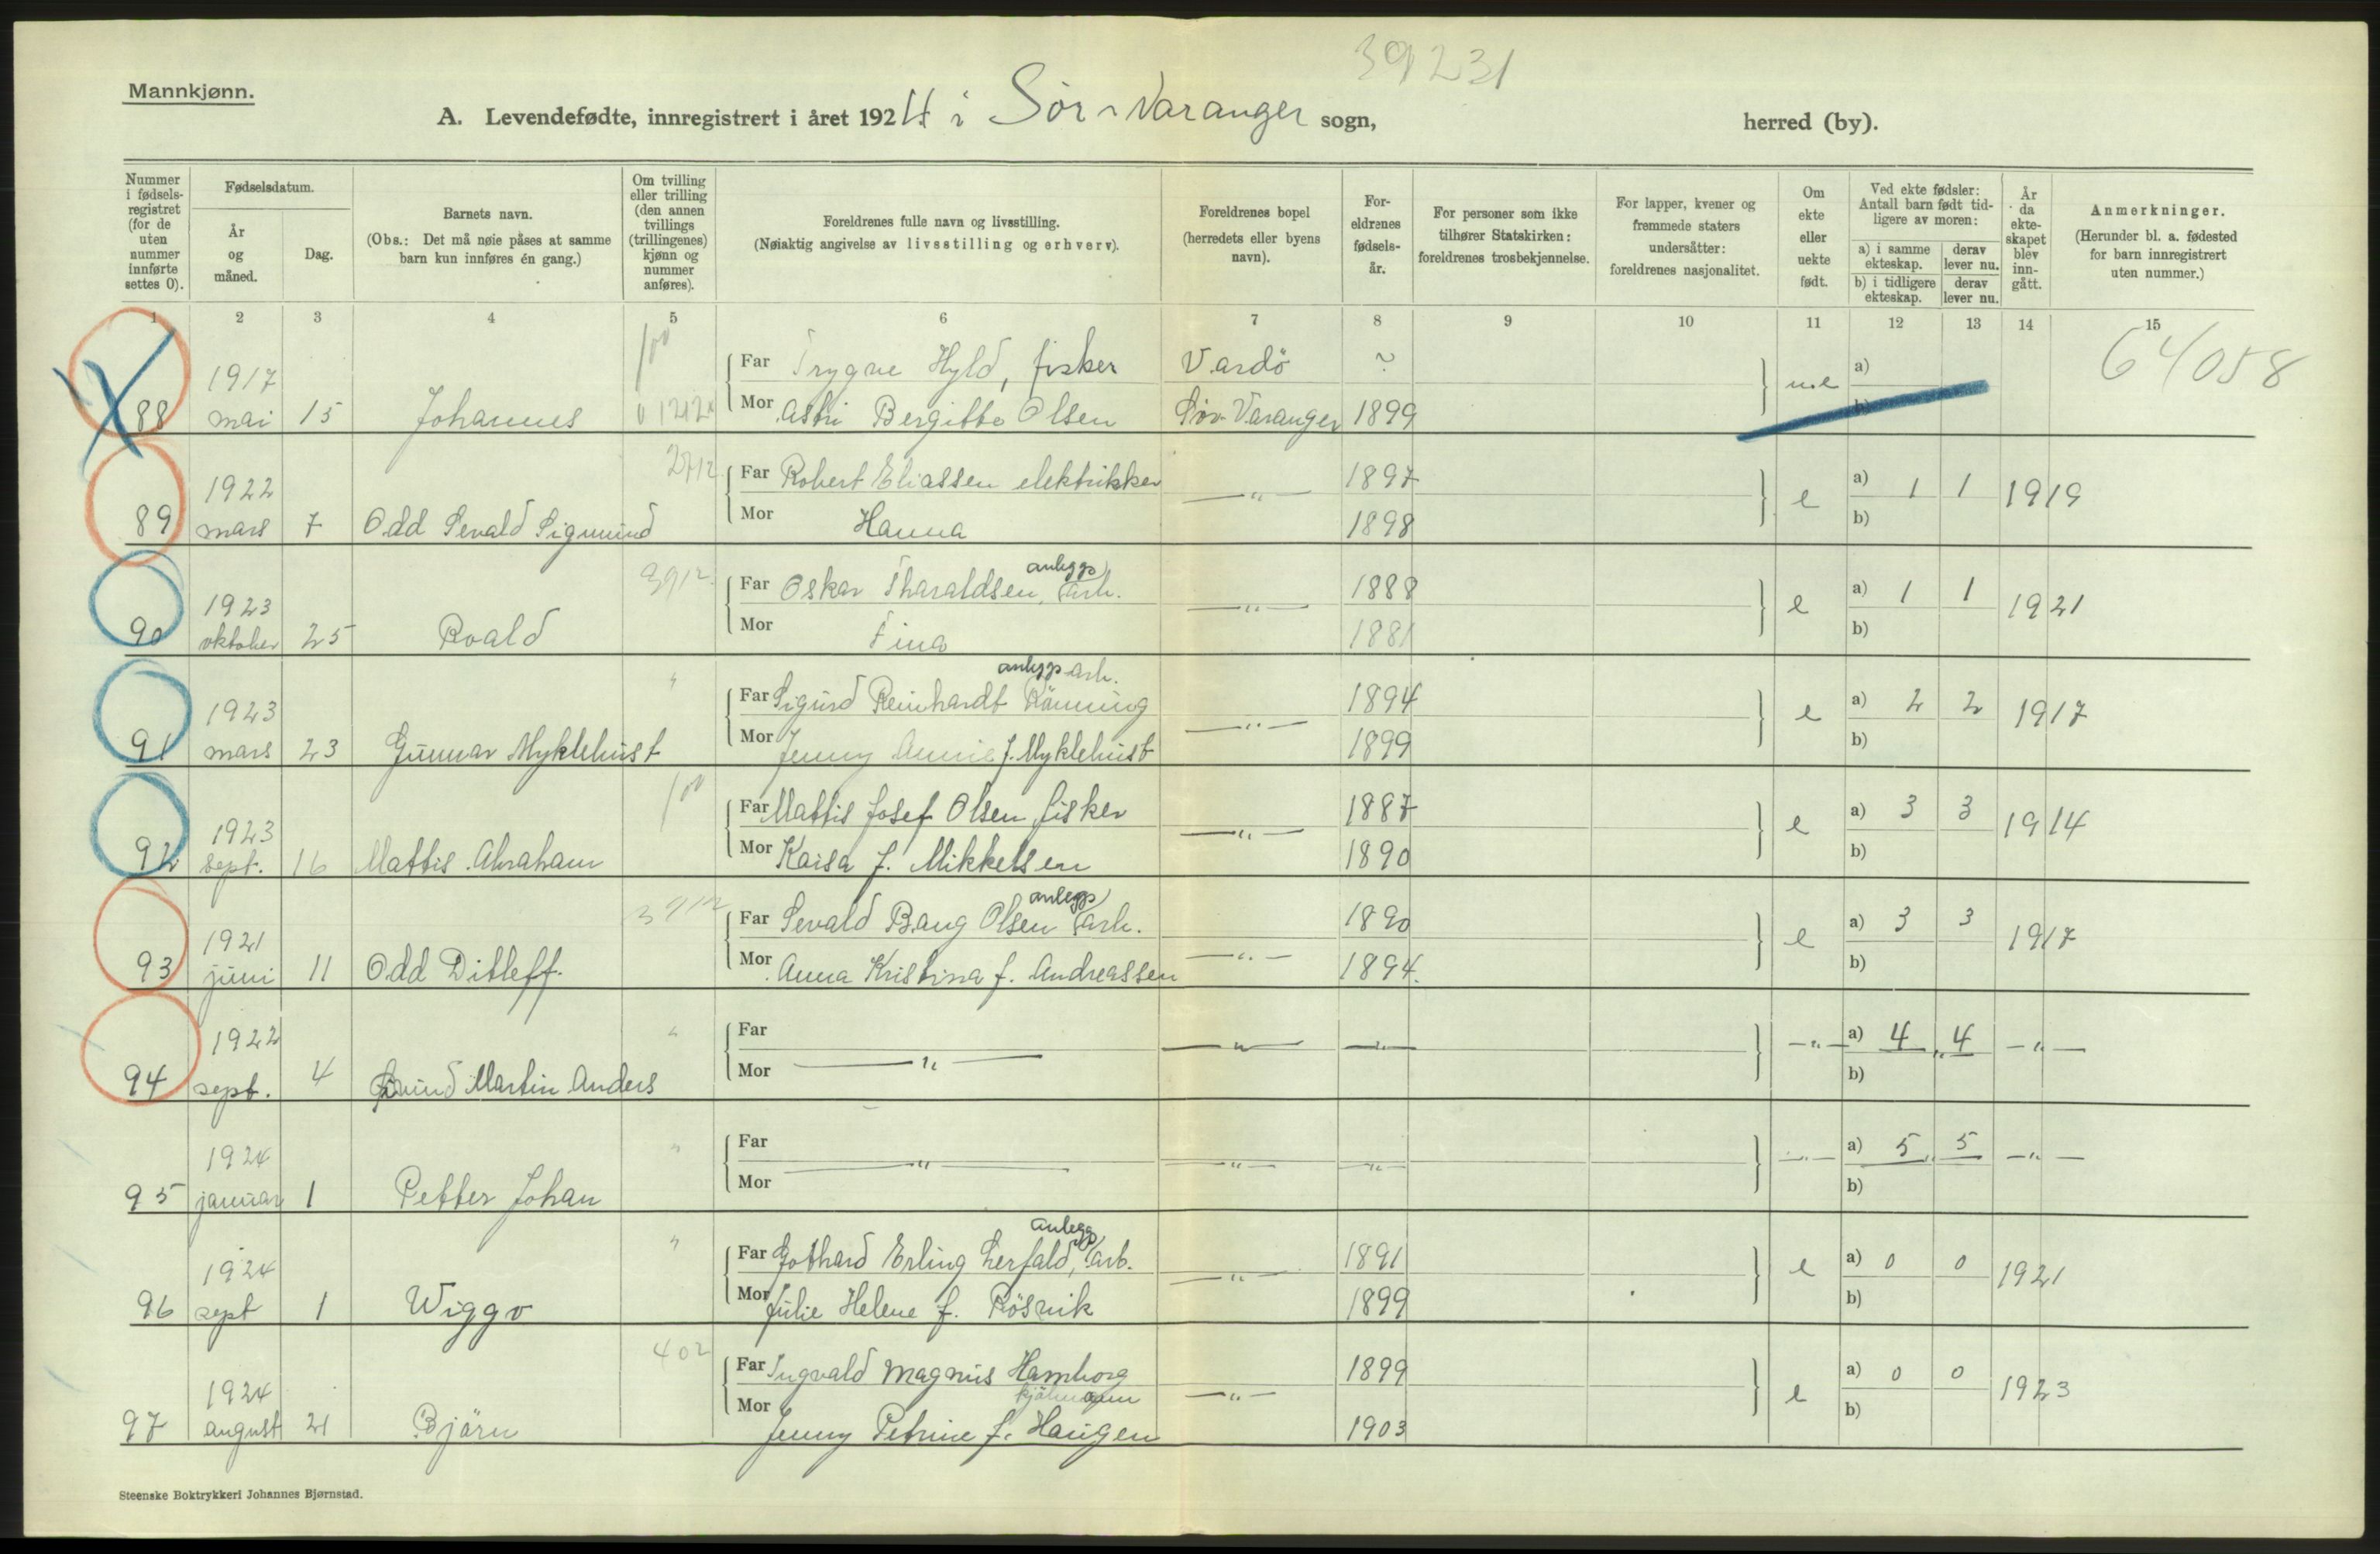 39231
Mannkjønn.
A. Levendefødte, innregistrert i året 1924 i Sör-Varanger sogn, herred (by).
Nummer i fødsels-registret (for de uten nummer innførte settes 0).
Fødselsdatum.
År og måned.
Dag.
Barnets navn.
(Obs.: Det må nøie påses at samme barn kun innføres én gang.)
Om tvilling eller trilling (den annen tvillings (trillingenes) kjønn og nummer anføres).
Foreldrenes fulle navn og livsstilling.
(Nøiaktig angivelse av livsstilling og erhverv).
Foreldrenes bopel (herredets eller byens navn).
For-eldrenes fødsels-år.
For personer som ikke tilhører Statskirken: foreldrenes trosbekjennelse.
For lapper, kvener og fremmede staters undersåtter: foreldrenes nasjonalitet.
Om ekte eller uekte født.
Ved ekte fødsler: Antall barn født tid-ligere av moren:
a) i samme ekteskap. derav lever nu.
b) i tidligere ekteskap. derav lever nu.
År da ekte-skapet blev inn-gått.
Anmerkninger.
(Herunder bl. a. fødested for barn innregistrert uten nummer.)
1 2 3 4 5 6 7 8 9 10 11 12 13 14 15
100 64058
1917 Far Trygve Hyld, fisker Vardö ? u.e a)
88 mai 15 Johannes Mor Astri Bergitte Olsen Sör-Varanger 1899 b)
1922 2712 Far Robert Eliassen elektrikker —"— 1897 e a) 1 1 1919
89 mars 7 Odd Sevald Sigmund Mor Hanna 1898 b)
anleggs
1923 3912 Far Oskar Tharaldsen, arb. —"— 1888 e a) 1 1 1921
90 oktober 25 Roald Mor Fina 1881 b)
anleggsarb.
1923 " Far Sigurd Reinhardt Rönning —"— 1894 e a) 2 2 1917
91 mars 23 Gunnar Myklebust Mor Jenny Annie f. Myklebust 1899 b)
1923 100 Far Mattis Josef Olsen fisker —"— 1887 e a) 3 3 1914
92 sept. 16 Mattis Abraham Mor Kaisa f. Mikkelsen 1890 b)
anleggs
1921 3912 Far Sevald Bang Olsen arb. —"— 1890 e a) 3 3 1917
93 juni 11 Odd Ditleff. Mor Anna Kristina f. Andreassen 1894. b)
1922 " Far —"— —"— —"— —"— a) 4 4 —"—
94 sept. 4 Øivind Martin Anders Mor b)
1924 " Far —"— —"— —"— —"— a) 5 5 —"—
95 januar 1 Petter Johan Mor b)
anleggs
1924 " Far Gothard Erling Lerfald, arb. —"— 1891 e a) 0 0 1921
96 sept 1 Wiggo Mor Julie Helene f. Rösvik 1899 b)
402 Far Ingvald Magnus Hamborg 1899 a) 0 0 1923
1924 —"— e
97 august 21 Björn Mor Jenny Petrine f. Haugen 1903 b)
Steenske Boktrykkeri Johannes Bjørnstad.